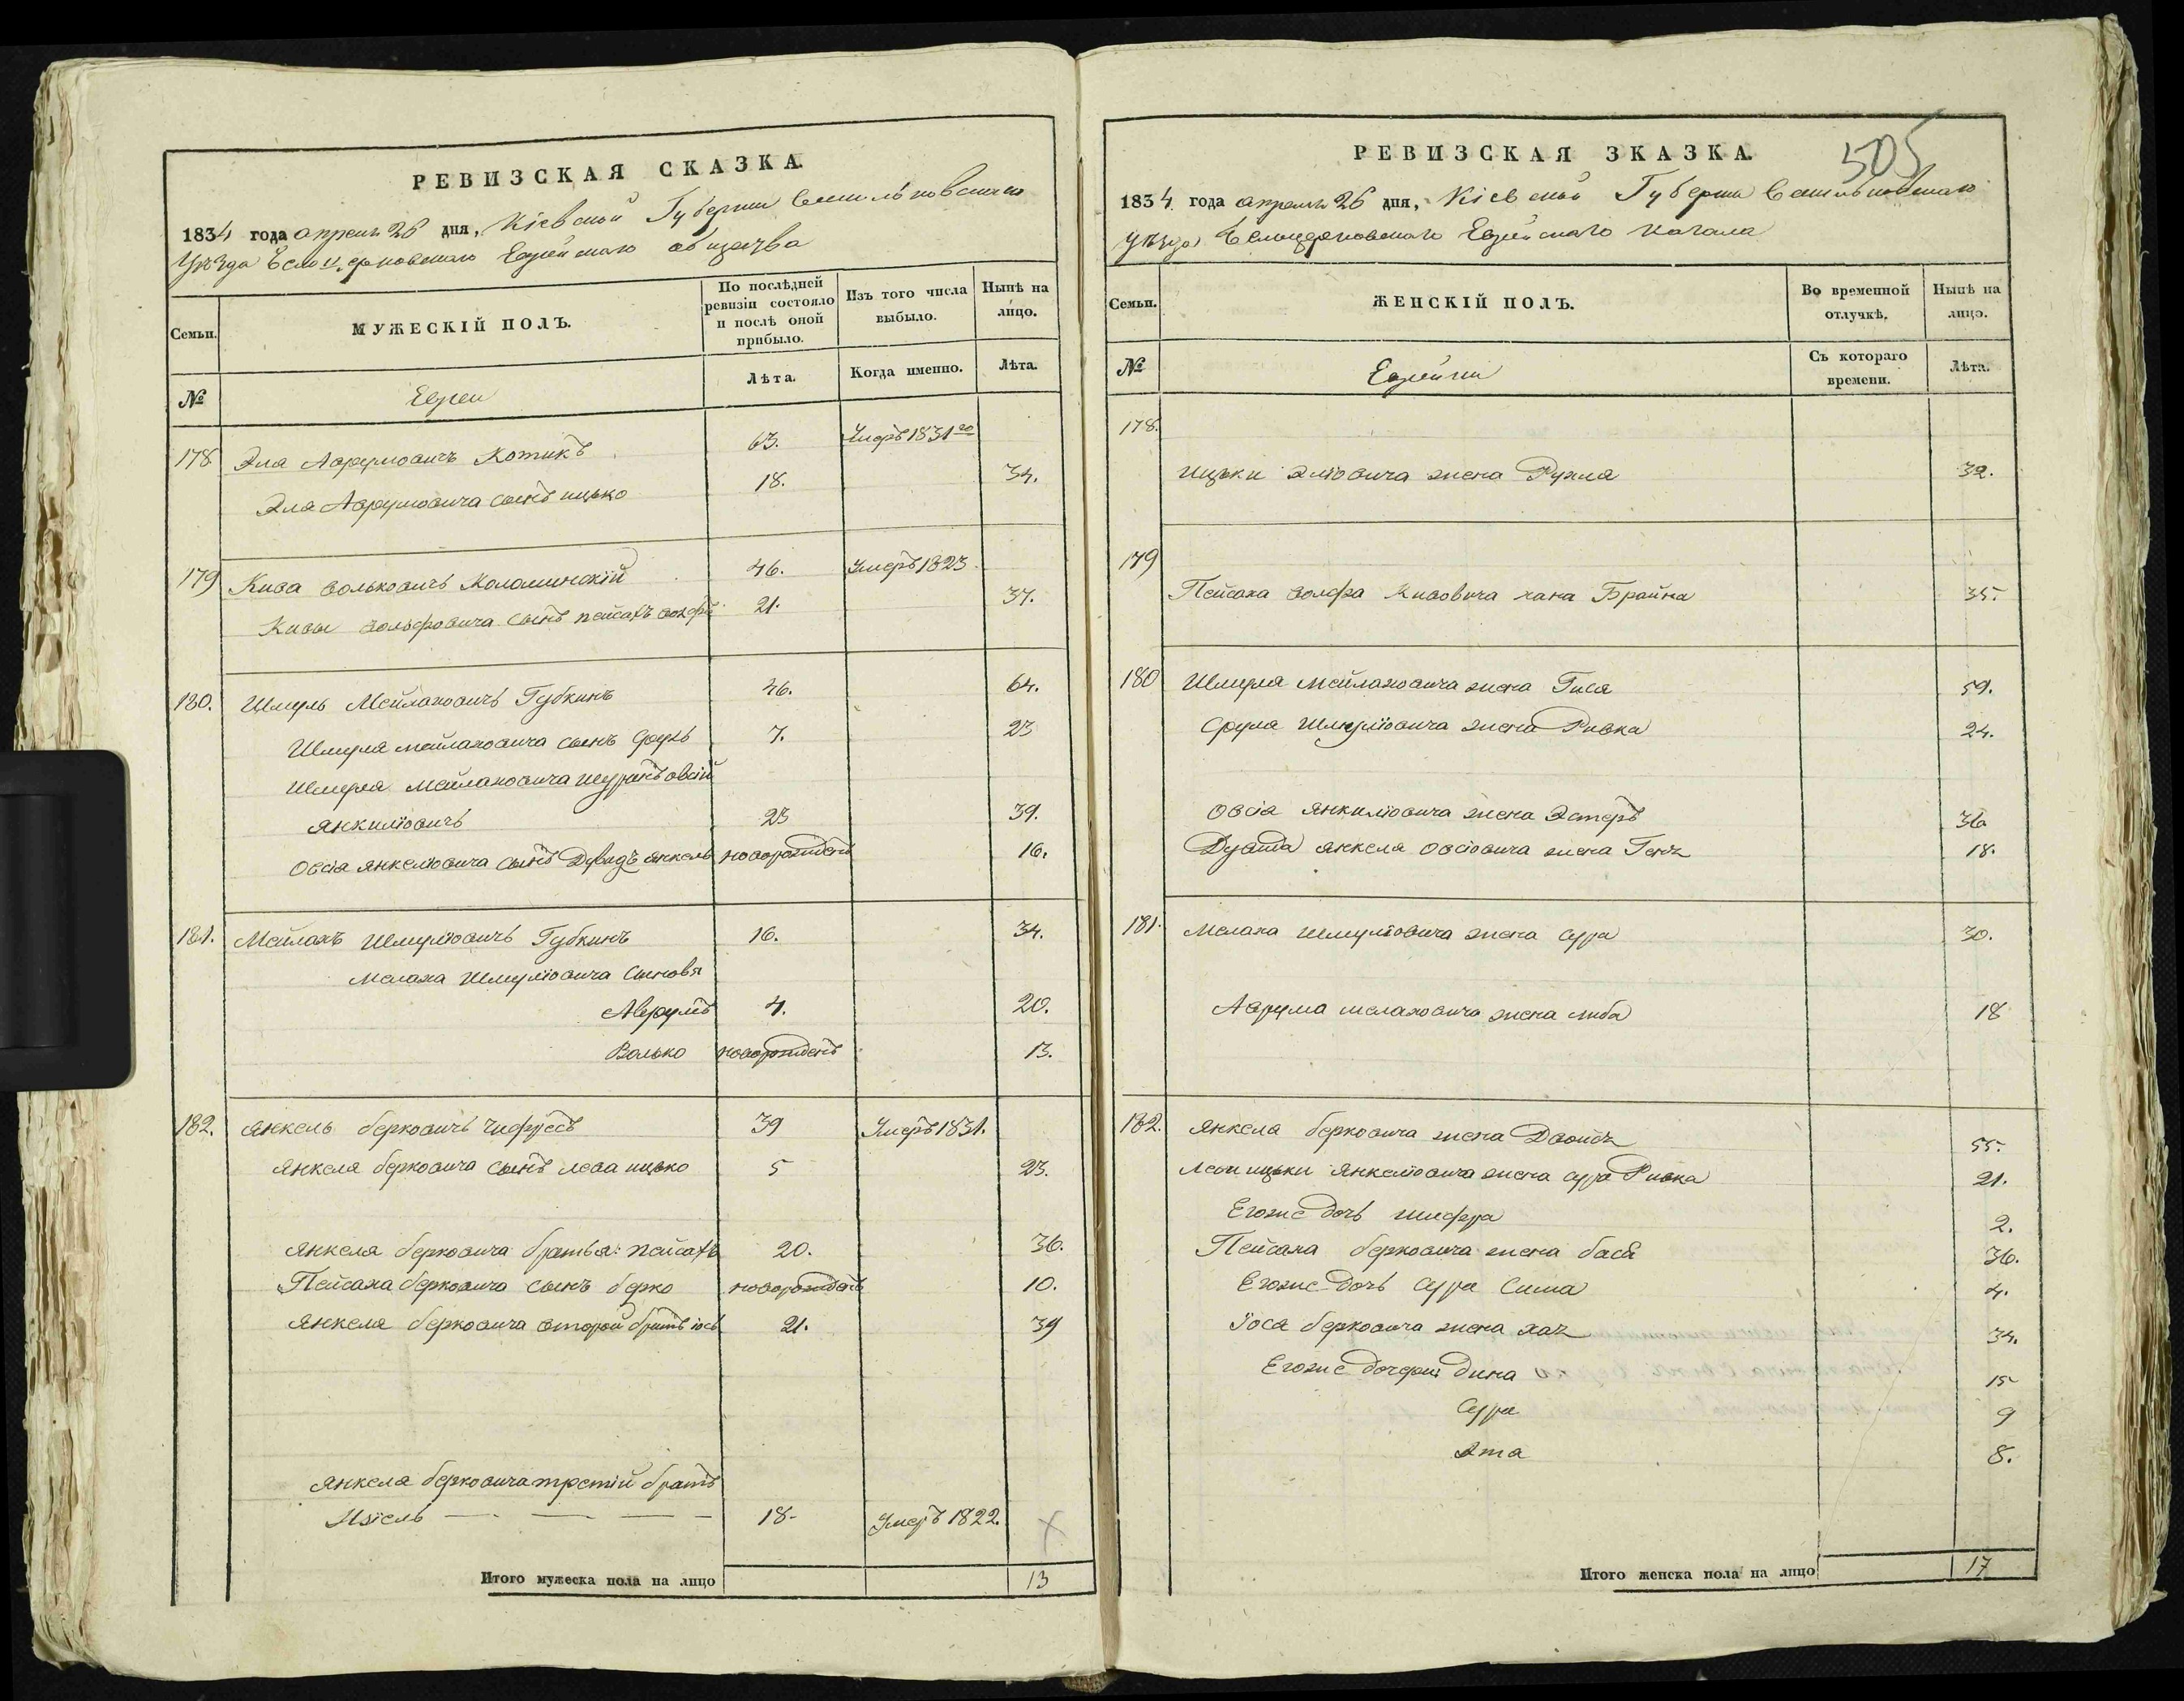 РЕВИЗСКАЯ СКАЗКА.
1834 года апреля 26 дня, Кіевской Губерніи Васильковскаго
Уѣзда Белоцерковскаго Еврейскаго общества
Семьи.
МУЖЕСКІЙ ПОЛЪ.
По послѣдней ревизіи состояло и послѣ оной прибыло.
Изъ того числа выбыло.
Нынѣ на лицо.
№
Евреи
Лѣта.
Когда именно.
Лѣта.
178 Эля Аврумовичъ Котикъ 63. Умеръ 1831го
Эля Аврумовича сынъ ицько 18. 34.
179 Кива волковичъ Коломинскій 46. Умеръ 1823
Кивы вольфовича сынъ пейсахъ вольфъ 21. 37.
180. Шмуль Мейлаховичъ Губкинъ 46. 64.
Шмуля мейлаховича сынъ Сруль 7. 23
Шмуля Мейлаховича шуринъ овсій
янкилiовичъ 23 39.
Овсія янкелiовича сынъ Дувидъ янкель новорожденъ 16.
181. Мейлахъ Шмулiовичъ Губкинъ 16. 34.
Мелаха Шмулiовича сыновя
Аврумъ 4. 20.
Волько новорожденъ 13.
182. янкель берковичъ Чифрусъ 39 Умеръ 1831.
янкеля берковича сынъ лейба ицько 5 23.
янкеля берковича братья: пейсахъ 20. 36.
Пейсаха берковича сынъ берко новорожденъ 10.
янкеля берковича второй братъ іось 21. 39
янкеля берковича третій братъ
Изіель — — — — 18 - Умеръ 1822.
Итого мужеска пола на лицо 13
505
РЕВИЗСКАЯ ЗКАЗКА.
1834 года апреля 26 дня, Кіевской Губерніи Васильковскаго
Уѣзда Белоцерковскаго Еврейскаго кагала
Семьи.
ЖЕНСКІЙ ПОЛЪ.
Во временной отлучкѣ.
Нынѣ на лицо.
№
Еврейки
Съ котораго времени.
Лѣта.
178.
ицьки элiовича жена Рухля 32.
179
Пейсаха волфа Кивовича хана Брайна 35.
180 Шмуля мейлаховича жена Гися 59.
Сруля Шмулiовича жена Ривка 24.
Овсія янкилiовича жена Эстеръ 36
Дувида янкеля овсіовича жена Геня 18.
181. Мелаха шмулiовича жена сура 30.
Аврума мелаховича жена либа 18
182. янкеля берковича жена Двойся 55.
Лейбы ицьки янкелiовича жена сура Ривка 21.
Егоже дочь шифра 2.
Пейсаха берковича жена бася 36.
Егоже дочь сура Сима 4.
Іося берковича жена хая 34.
Егоже дочери: дина 15
Сура 9
Эта 8.
Итого женска пола на лицо 17